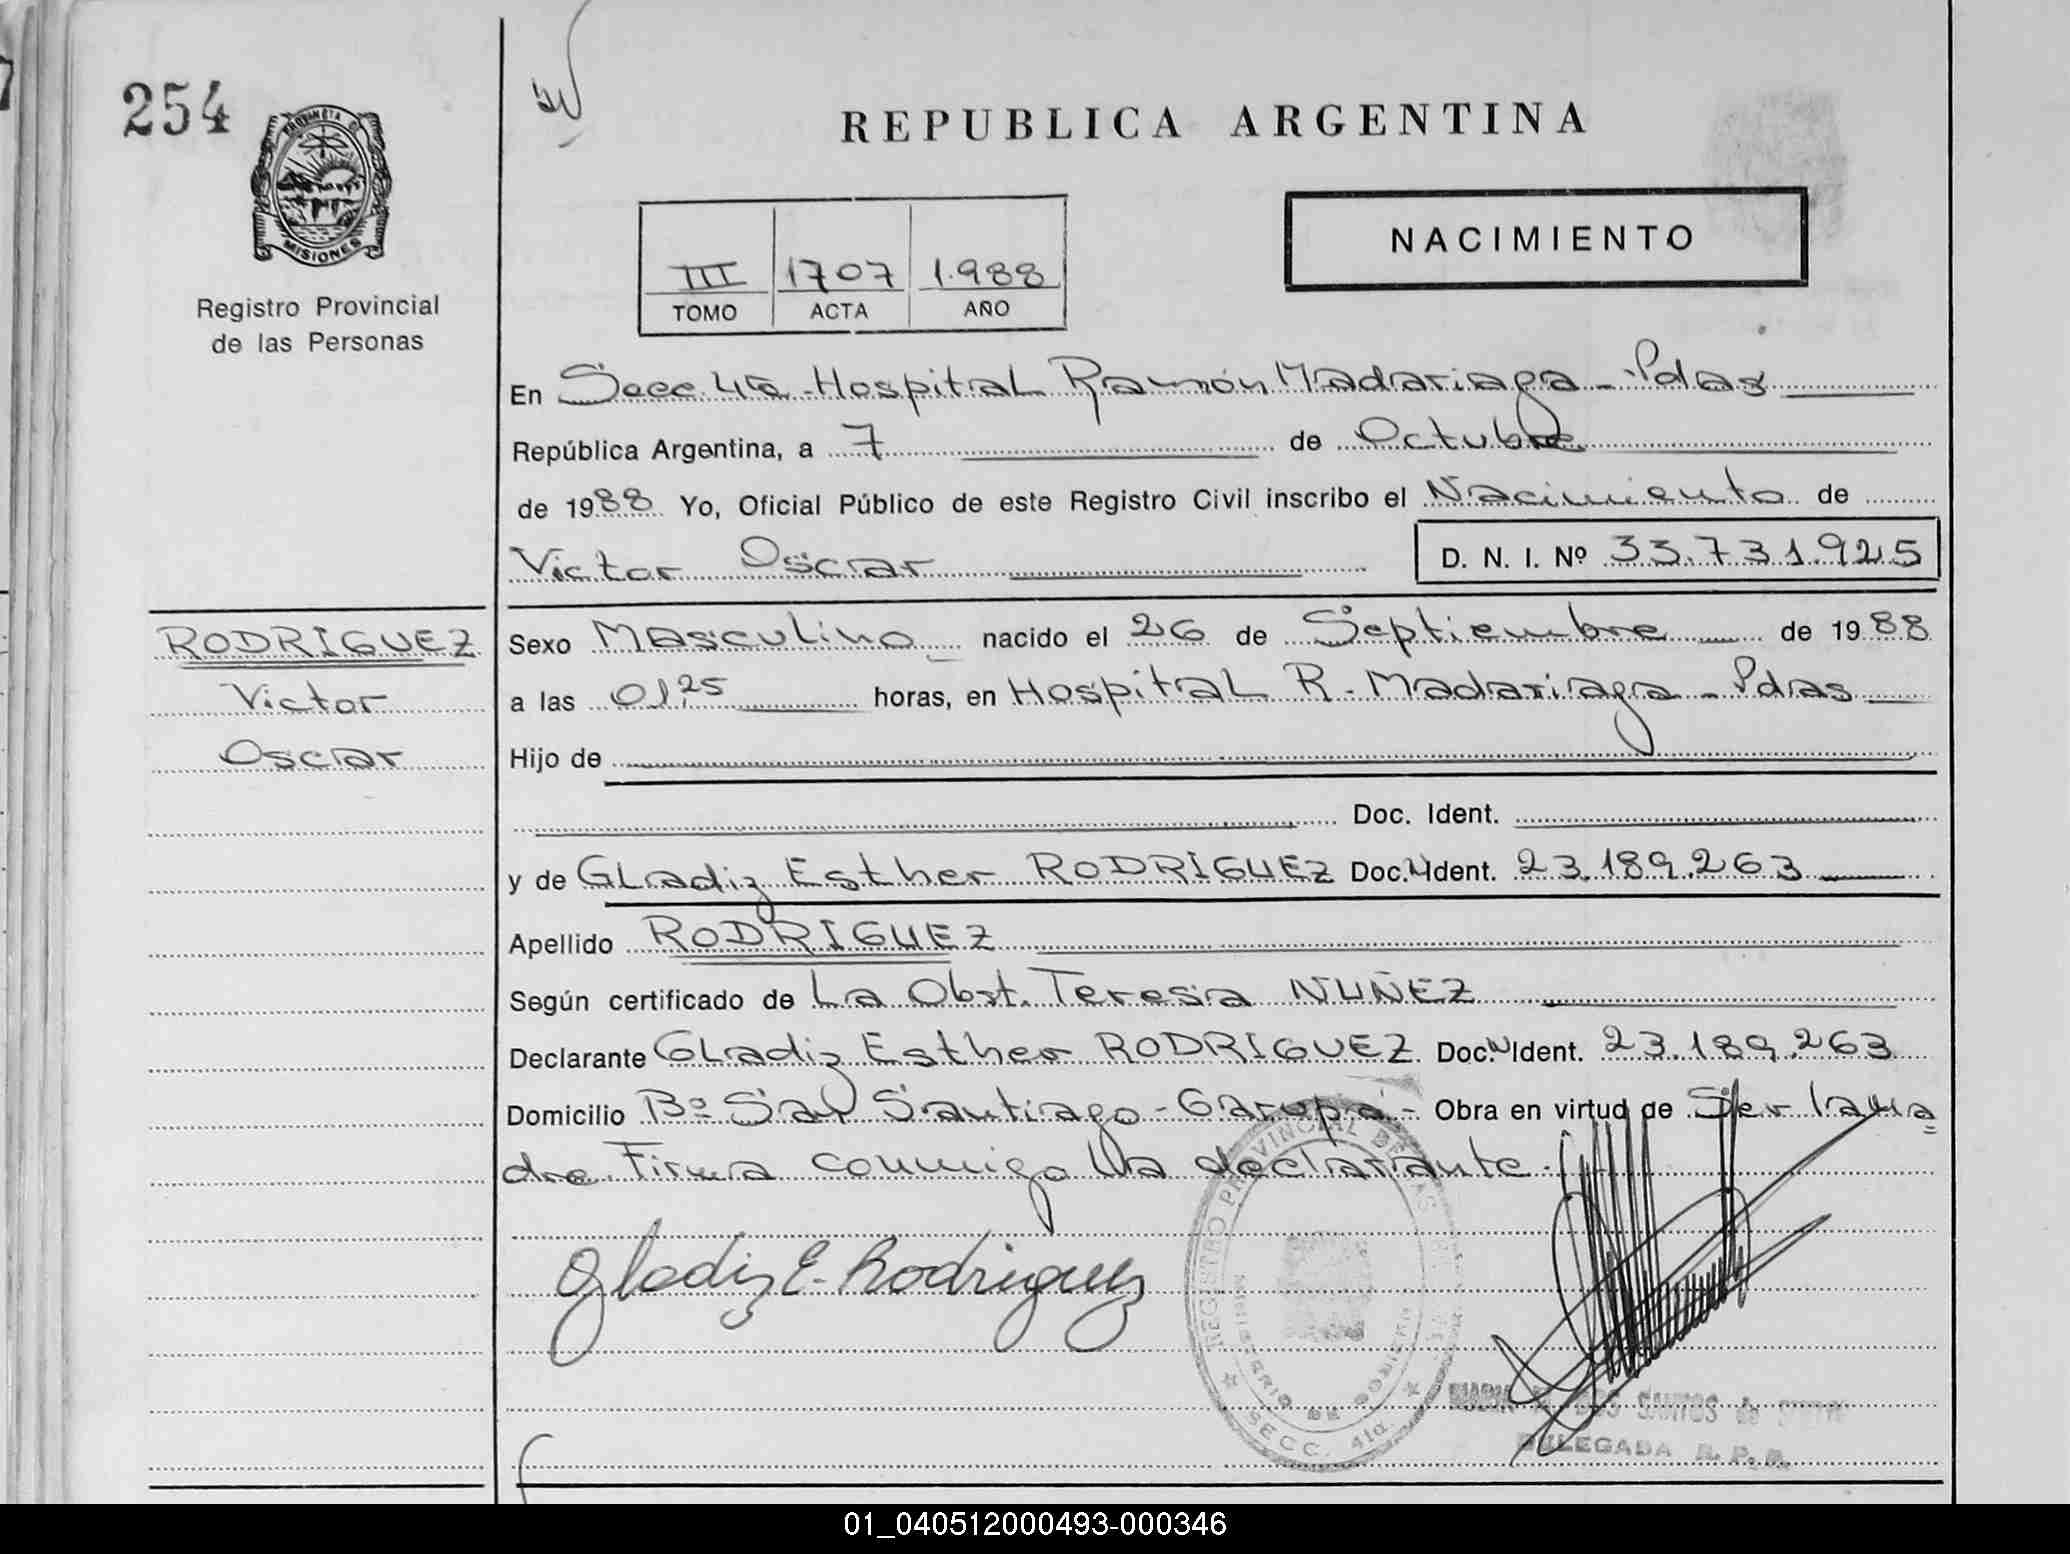 254
PROVINCIA DE
MISIONES
Registro Provincial
de las Personas
REPUBLICA ARGENTINA
NACIMIENTO
III 1707 1.988
TOMO ACTA AÑO
En Secc. 4ta. Hospital Ramón Madariaga - Pdas
República Argentina, a 7 de Octubre
de 1988 Yo, Oficial Público de este Registro Civil inscribo el Nacimiento de
Victor Oscar D. N. I. Nº 33.731.925
RODRIGUEZ
Victor
Oscar
Sexo Masculino nacido el 26 de Septiembre de 1988
a las 01,25 horas, en Hospital R. Madariaga - Pdas
Hijo de
Doc. Ident.
y de Gladiz Esther RODRIGUEZ Doc. N Ident. 23.189.263
Apellido RODRIGUEZ
Según certificado de La Obst. Teresa NUÑEZ
Declarante Gladiz Esther RODRIGUEZ Doc. N Ident. 23.189.263
Domicilio Bº San Santiago - Garupá - Obra en virtud de Ser la ma
dre. Firma conmigo la declarante.
Gladiz E. Rodriguez
REGISTRO PROVINCIAL DE LAS
MINISTERIO DE GOBIERNO
SECC. 4ta.
DOS SANTOS de
DELEGADA R. P. P.
01_040512000493-000346